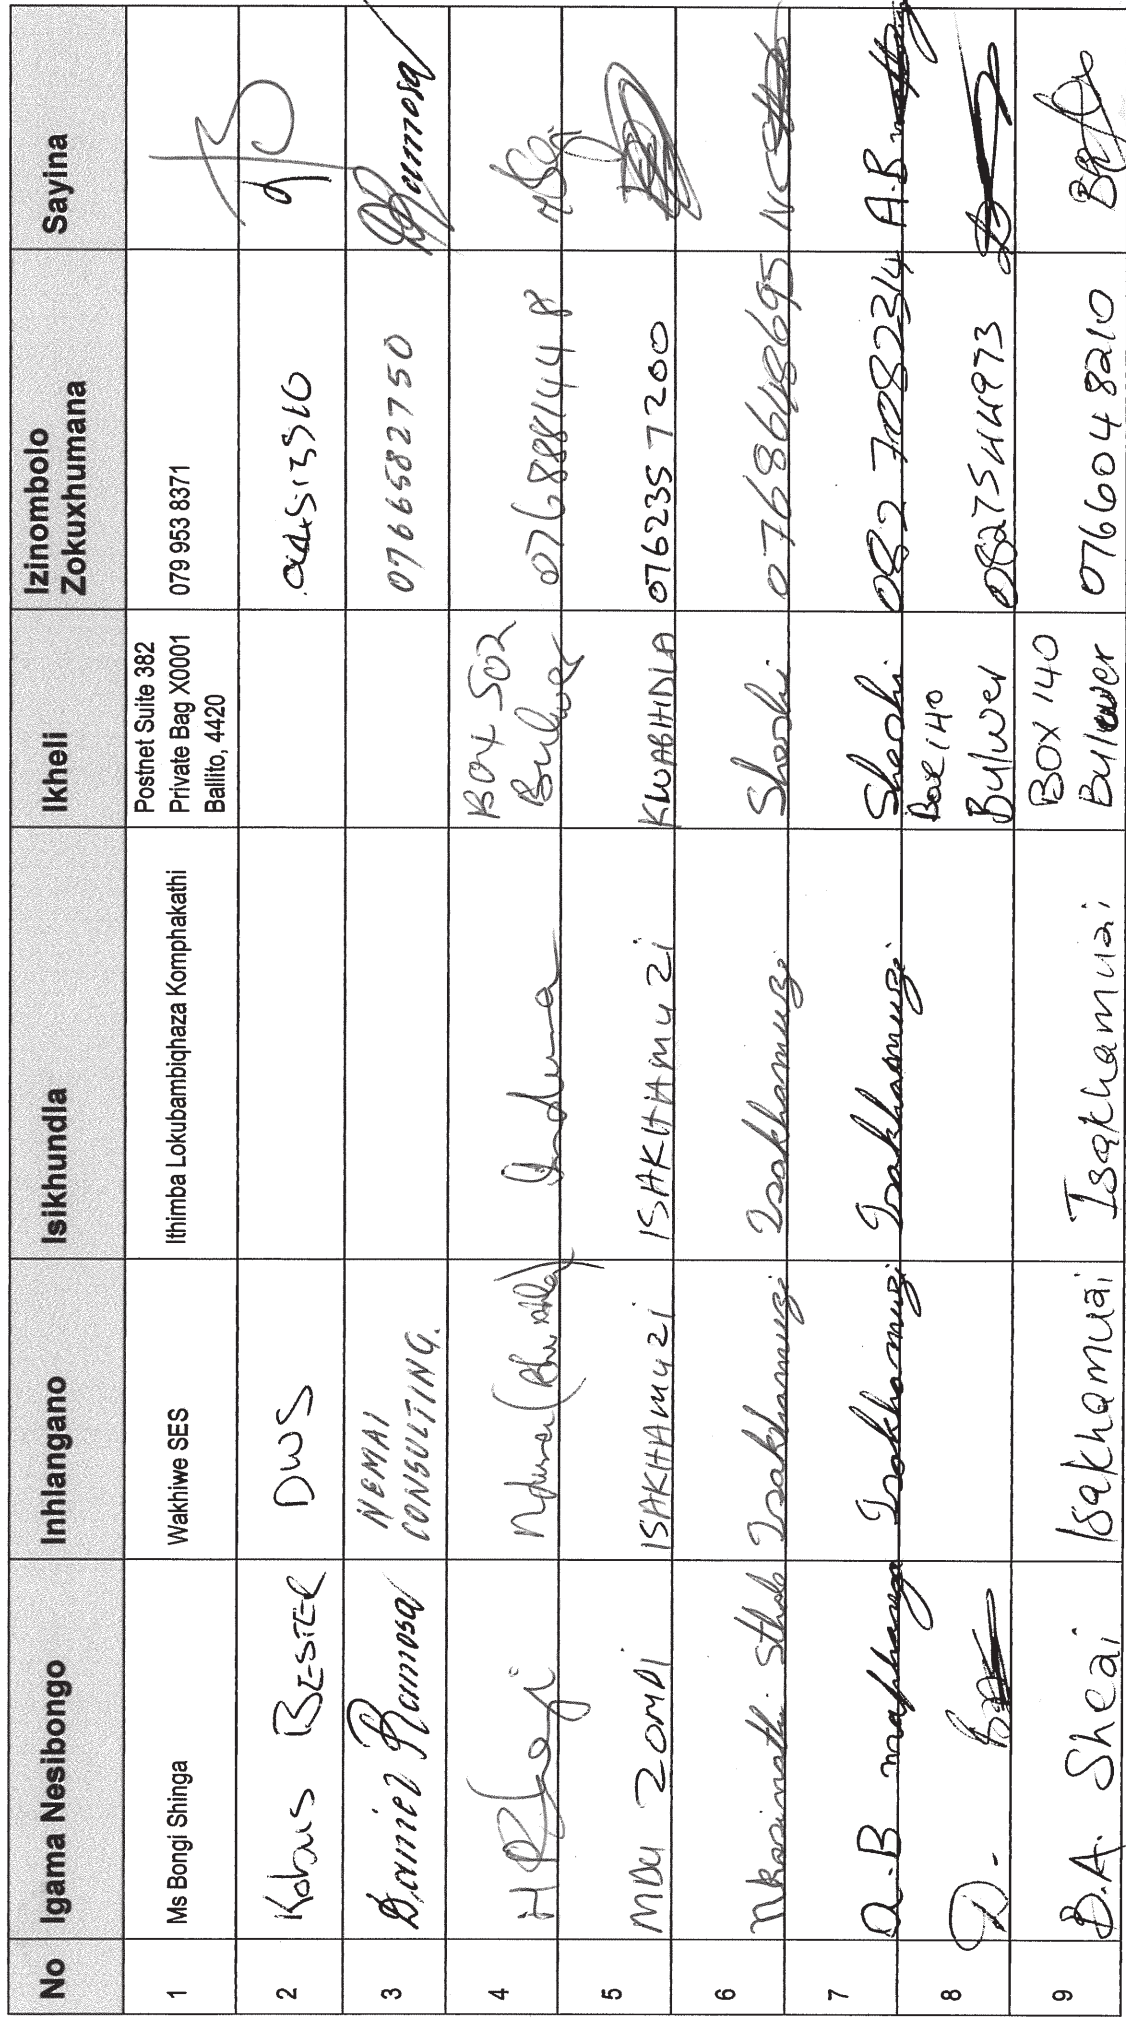 No Igama Nesibongo Inhlangano Isikhundla Ikheli Izinombolo Zokuxhumana Sayina
1 Ms Bongi Shinga Wakhiwe SES Ithimba Lokubambiqhaza Komphakathi Postnet Suite 382
Private Bag X0001
Ballito, 4420 079 953 8371
2 Kobus BESTER DWS
3 Daniel Ramosa NEMAI
CONSULTING. 0766582750 Ramosa
4 H Induna BOX 502
Bulwer 0768881448
5 MDU ZOMDI ISAKHAMUZI ISAKHAMUZI KWABHIDLA 0762357200
6 Sthole Isakhamuzi Isakhamuzi Sheshi 0768648695
7 A.B maphanga Isakhamuzi Isakhamuzi Sheshi 082 7082314 A.B
8 D. Box 140
Bulwer 0827544973
9 B.A. Sheai Isakhamuai Isakhamuai BOX 140
Bulwer 0766048210